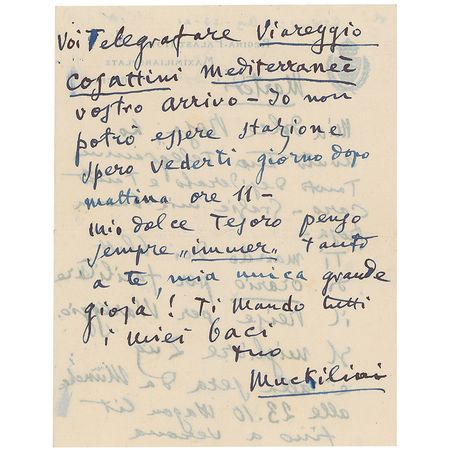 Voi Telegrafare Viareggio
Cosattini Mediterraneè
vostro arrivo – Io non
potrò essere stazione
spero vederti giorno dopo
mattina ore 11 –
mio dolce Tesoro penso
sempre „immer" tanto
a te, mia unica grande
gioja! Ti mando tutti
i miei baci
tuo
Muckilini